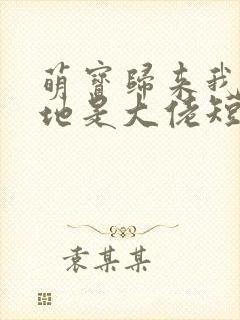 萌寶歸来我
地是大佬短
袁某某